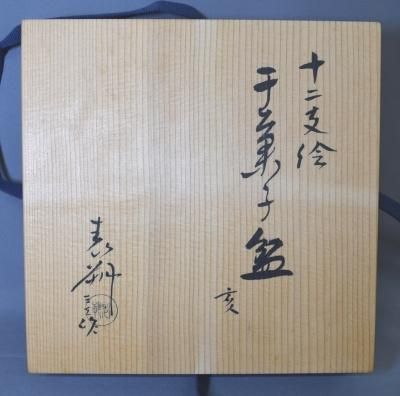 十二支絵
干菓子盆
亥
表朔